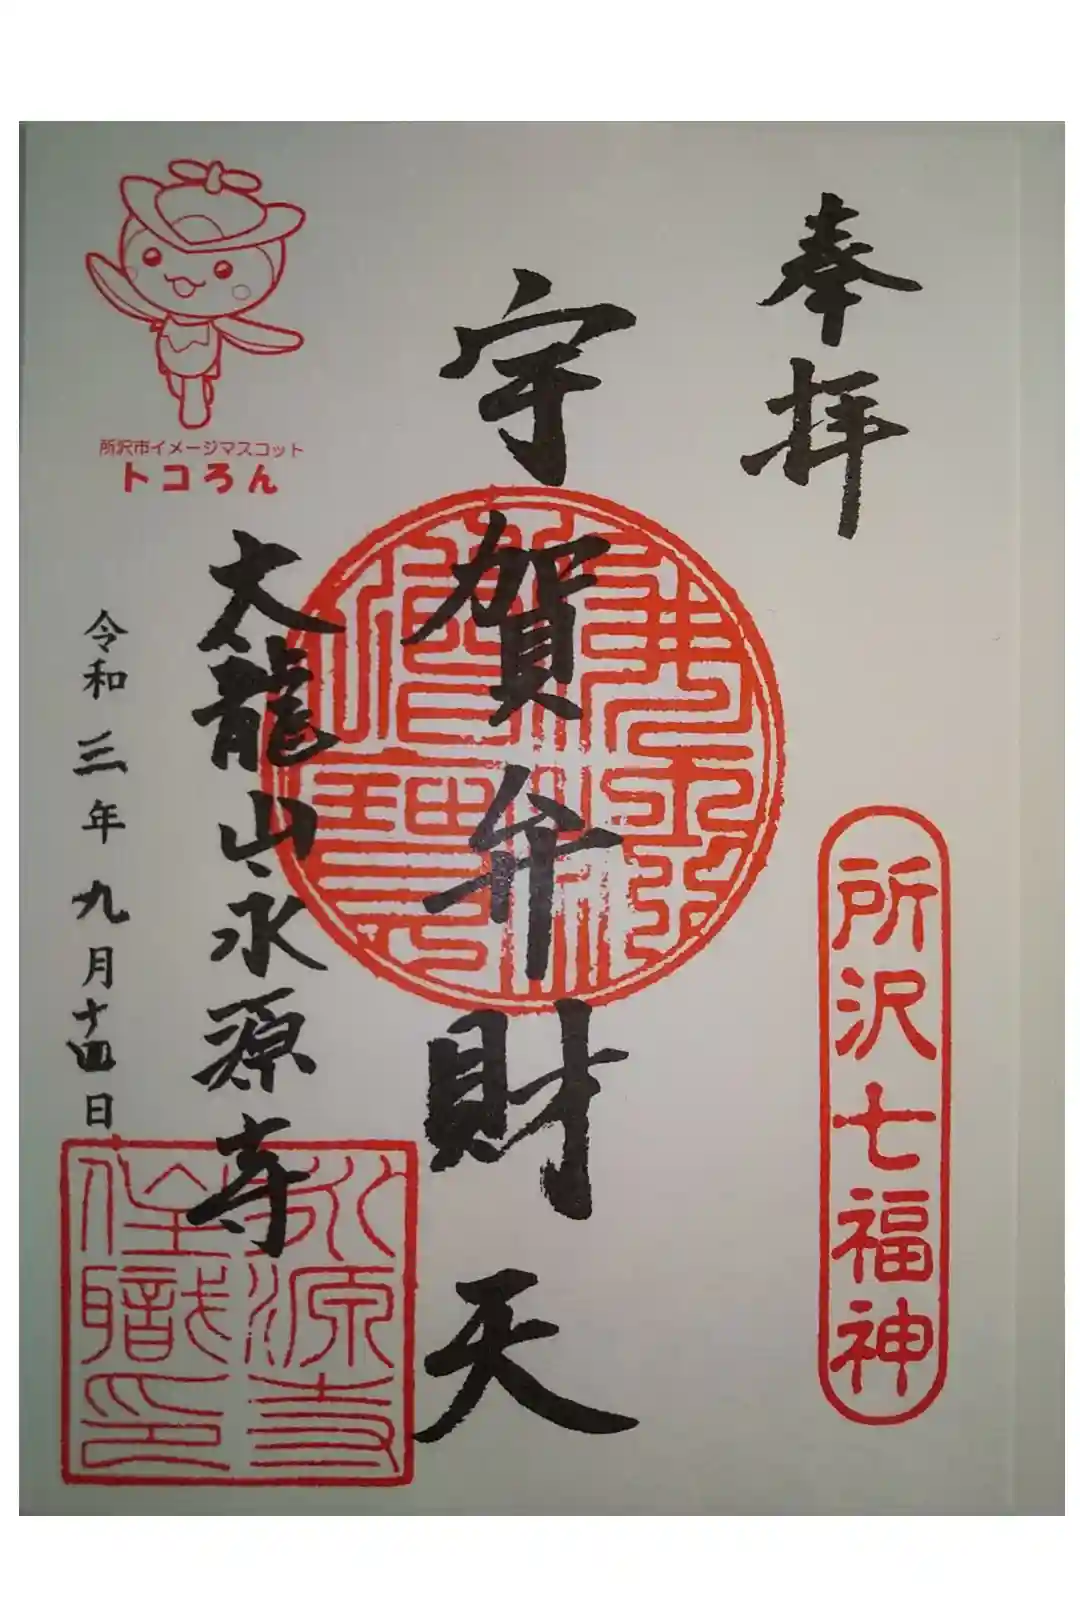 奉拝
所沢七福神
宇賀弁財天
佛法僧寶
大龍山永源寺
永源寺
住職印
令和三年九月十四日
所沢市イメージマスコット
トコろん